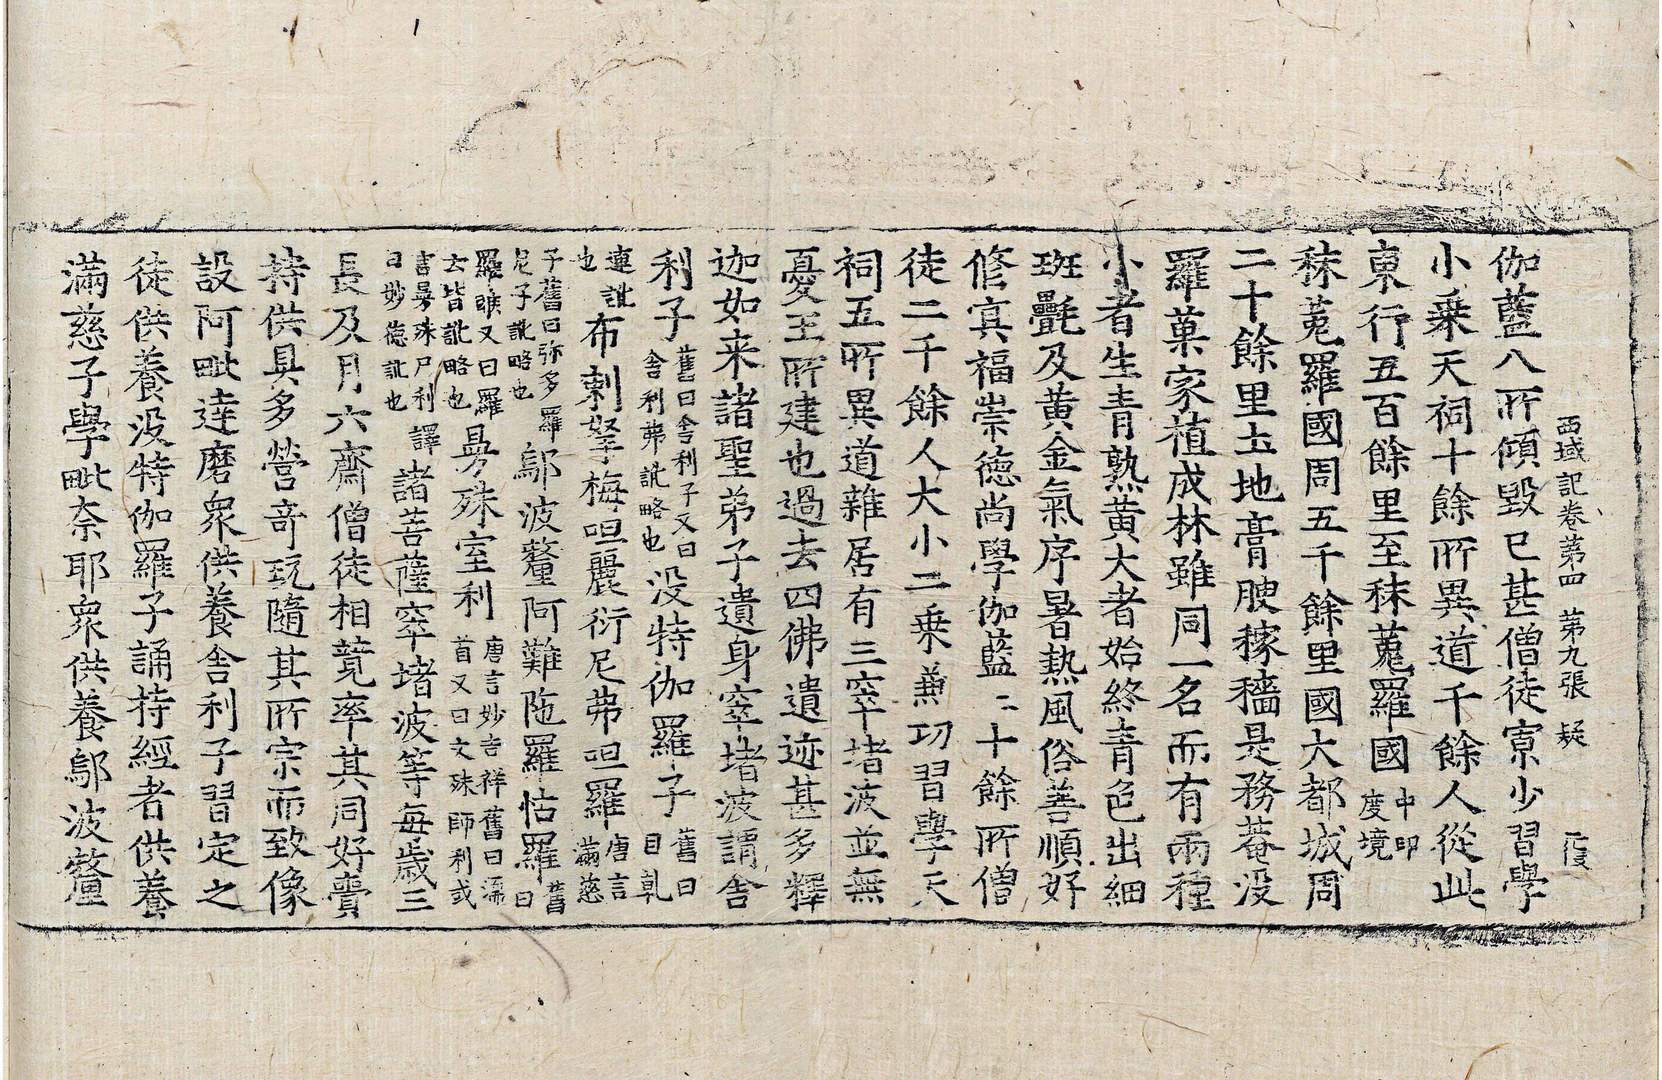 西域記卷第四 第九張 疑
伽藍八所傾毀已甚僧徒寡少習學
小乗天祠十餘所異道千餘人從此
東行五百餘里至秣菟羅國中印
度境
秣菟羅國周五千餘里國大都城周
二十餘里土地膏腴稼穡是務菴没
羅菓家植成林雖同一名而有兩種
小者生青熟黄大者始終青色出細
班㲲及黄金氣序暑熱風俗善順好
修冥福崇德尚學伽藍二十餘所僧
徒二千餘人大小二乗兼功習學天
祠五所異道雜居有三窣堵波並無
憂王所建也過去四佛遺迹甚多釋
迦如来諸聖弟子遺身窣堵波謂舎
利子舊曰舎利子又曰
舎利弗訛略也没特伽羅子舊曰
目乹
連訛
也布剌拏梅呾麗衍尼弗呾羅唐言
滿慈
子舊曰弥多羅
尼子訛略也鄔波釐阿難陁羅怙羅舊
曰
羅睺又曰羅
云皆訛略也曼殊室利唐言妙吉祥舊曰濡
首又曰文殊師利或
言曼殊尸利譯
曰妙德訛也諸菩薩窣堵波等每歳三
長及月六齋僧徒相競率其同好賷
持供具多營奇玩隨其所宗而致像
設阿毗達磨衆供養舎利子習定之
徒供養没特伽羅子誦持經者供養
滿慈子學毗奈耶衆供養鄔波釐